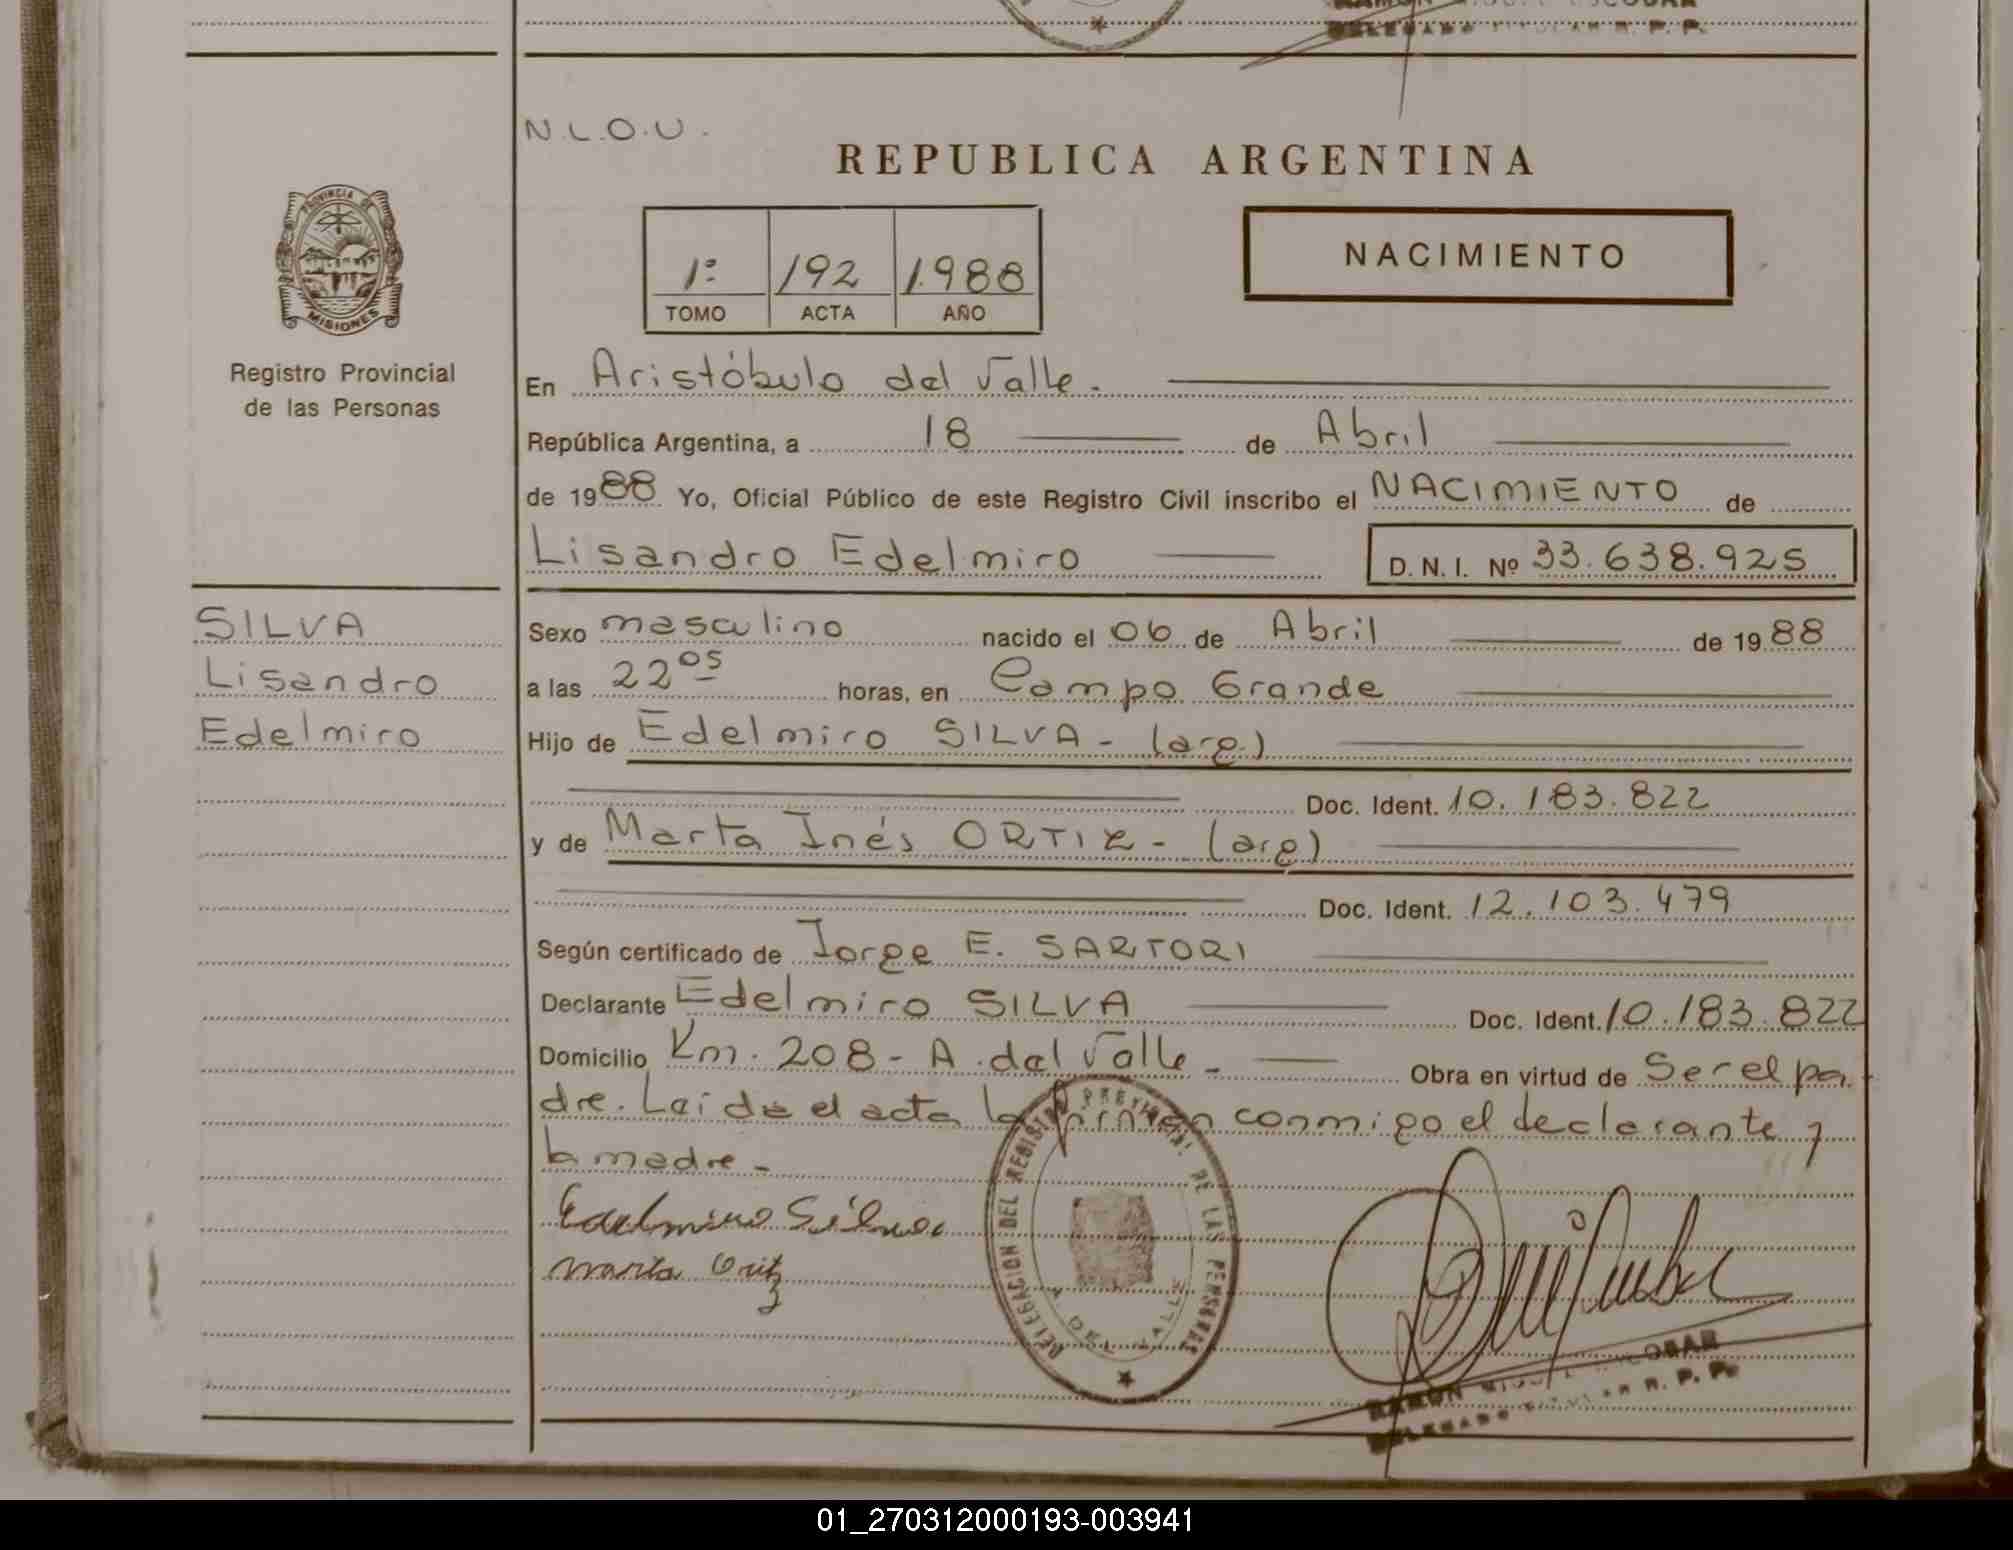 DELEGADO TITULAR R. P. P.
N.L.O.U.
REPUBLICA ARGENTINA
PROVINCIA DE
MISIONES
Registro Provincial
de las Personas
1º 192 1.988
TOMO ACTA AÑO
NACIMIENTO
En Aristóbulo del Valle.
República Argentina, a 18 de Abril
de 1988 Yo, Oficial Público de este Registro Civil inscribo el NACIMIENTO de
Lisandro Edelmiro D. N. I. Nº 33.638.925
SILVA
Lisandro
Edelmiro
Sexo masculino nacido el 06 de Abril de 1988
a las 22 05 horas, en Campo Grande
Hijo de Edelmiro SILVA - (arg.)
Doc. Ident. 10.183.822
y de Marta Inés ORTIZ - (arg)
Doc. Ident. 12.103.479
Según certificado de Jorge E. SARTORI
Declarante Edelmiro SILVA Doc. Ident. 10.183.822
Domicilio Km. 208 - A. del Valle - Obra en virtud de Ser el pa
dre. Leída el acta la firman conmigo el declarante y
la madre -
Edelmiro Silva
Marta Ortiz
DELEGACION DEL REGISTRO PROVINCIAL DE LAS PERSONAS
A DEL VALLE
RAMON MIGUEL ESCOBAR
DELEGADO TITULAR R. P. P.
01_270312000193-003941